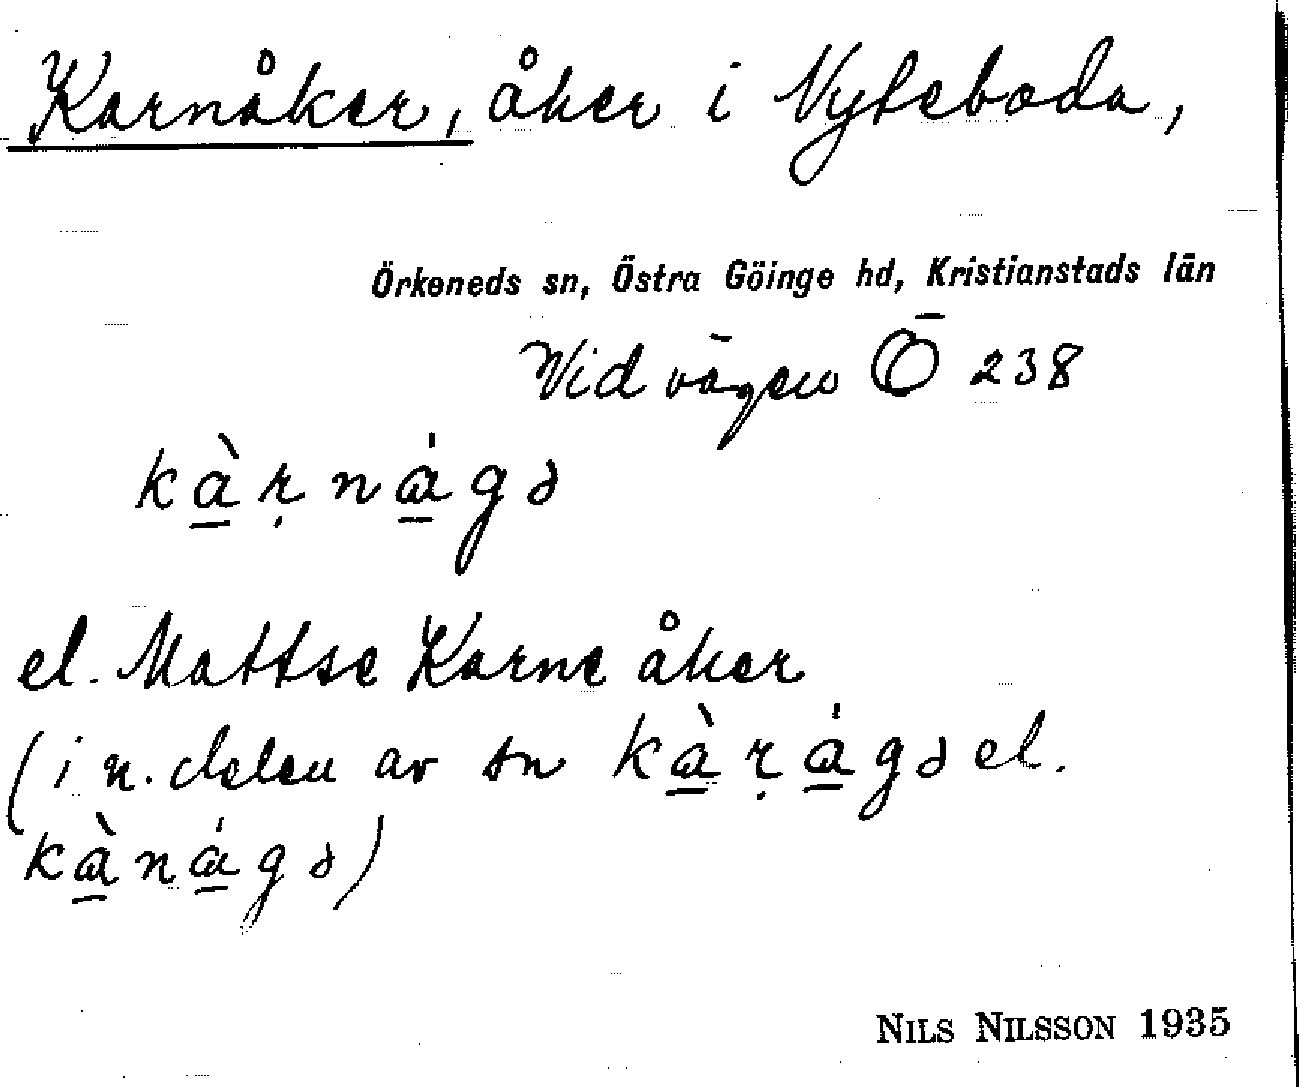 Karnåker, åker i Nyteboda,
Örkeneds sn, Östra Göinge hd, Kristianstads län
Vid vägen Ō 238
kàṛnágə
el. Mattse Karne åker
(i n. delen av sn kàṛágə el.
kànágə)
NILS NILSSON 1935